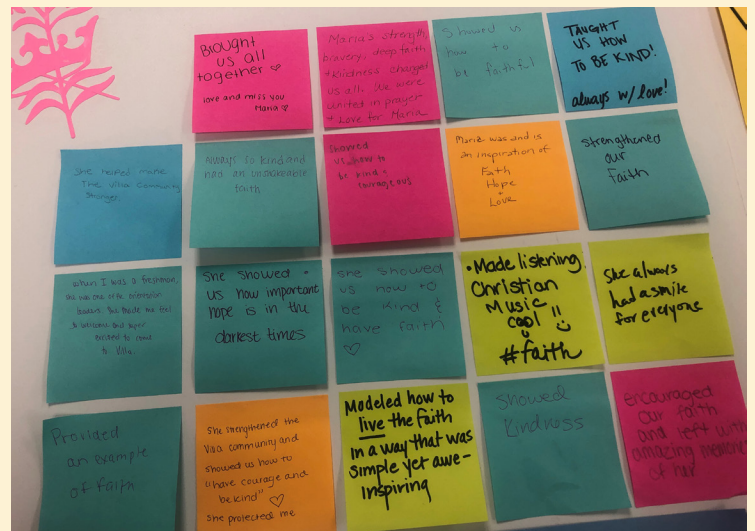 Brought
us all
together ♡
love and miss you
Maria ♡
Maria's strength,
bravery, deep faith
+ kindness changed
us all. We were
united in prayer
+ Love for Maria
Showed us
how to
be faithful
TAUGHT
US HOW
TO BE KIND!
always w/ love!
She helped make
The Villa Community
Stronger.
Always so kind and
had an unshakeable
faith
Showed
us how to
be kind +
courageous
Maria was and is
an inspiration of
Faith
Hope
+
Love
Strengthened
our
Faith
When I was a freshman,
she was one of the orientation
leaders. She made me feel
so welcome and super
excited to come
to Villa.
She showed
us how important
hope is in the
darkest times
She showed
us how to
be kind &
have faith
♡
• Made listening
Christian
Music
cool!!
#faith
She always
had a smile
for everyone
Provided
an example
of faith
She strengthened the
Villa community and
showed us how to
"have courage and
be kind" ♡
She protected me
Modeled how to
live the faith
in a way that was
simple yet awe-
inspiring
Showed
Kindness
encouraged
our faith
and left with
amazing memories
of her